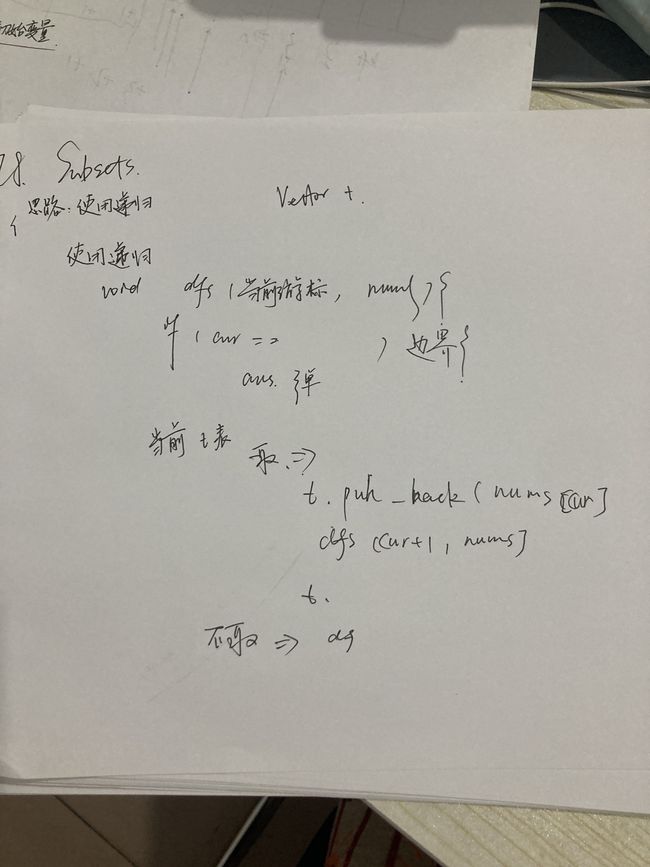 初始变量.
78. Subsets.
思路: 使用递归
Vector t.
使用递归
void dfs (当前游标, nums) {
if ( cur == ) 边界 {
ans. 弹
当前 t 表
取. ⇒
t. puh_back ( nums [cur]
dfs (cur+1, nums]
t.
不取 ⇒ df